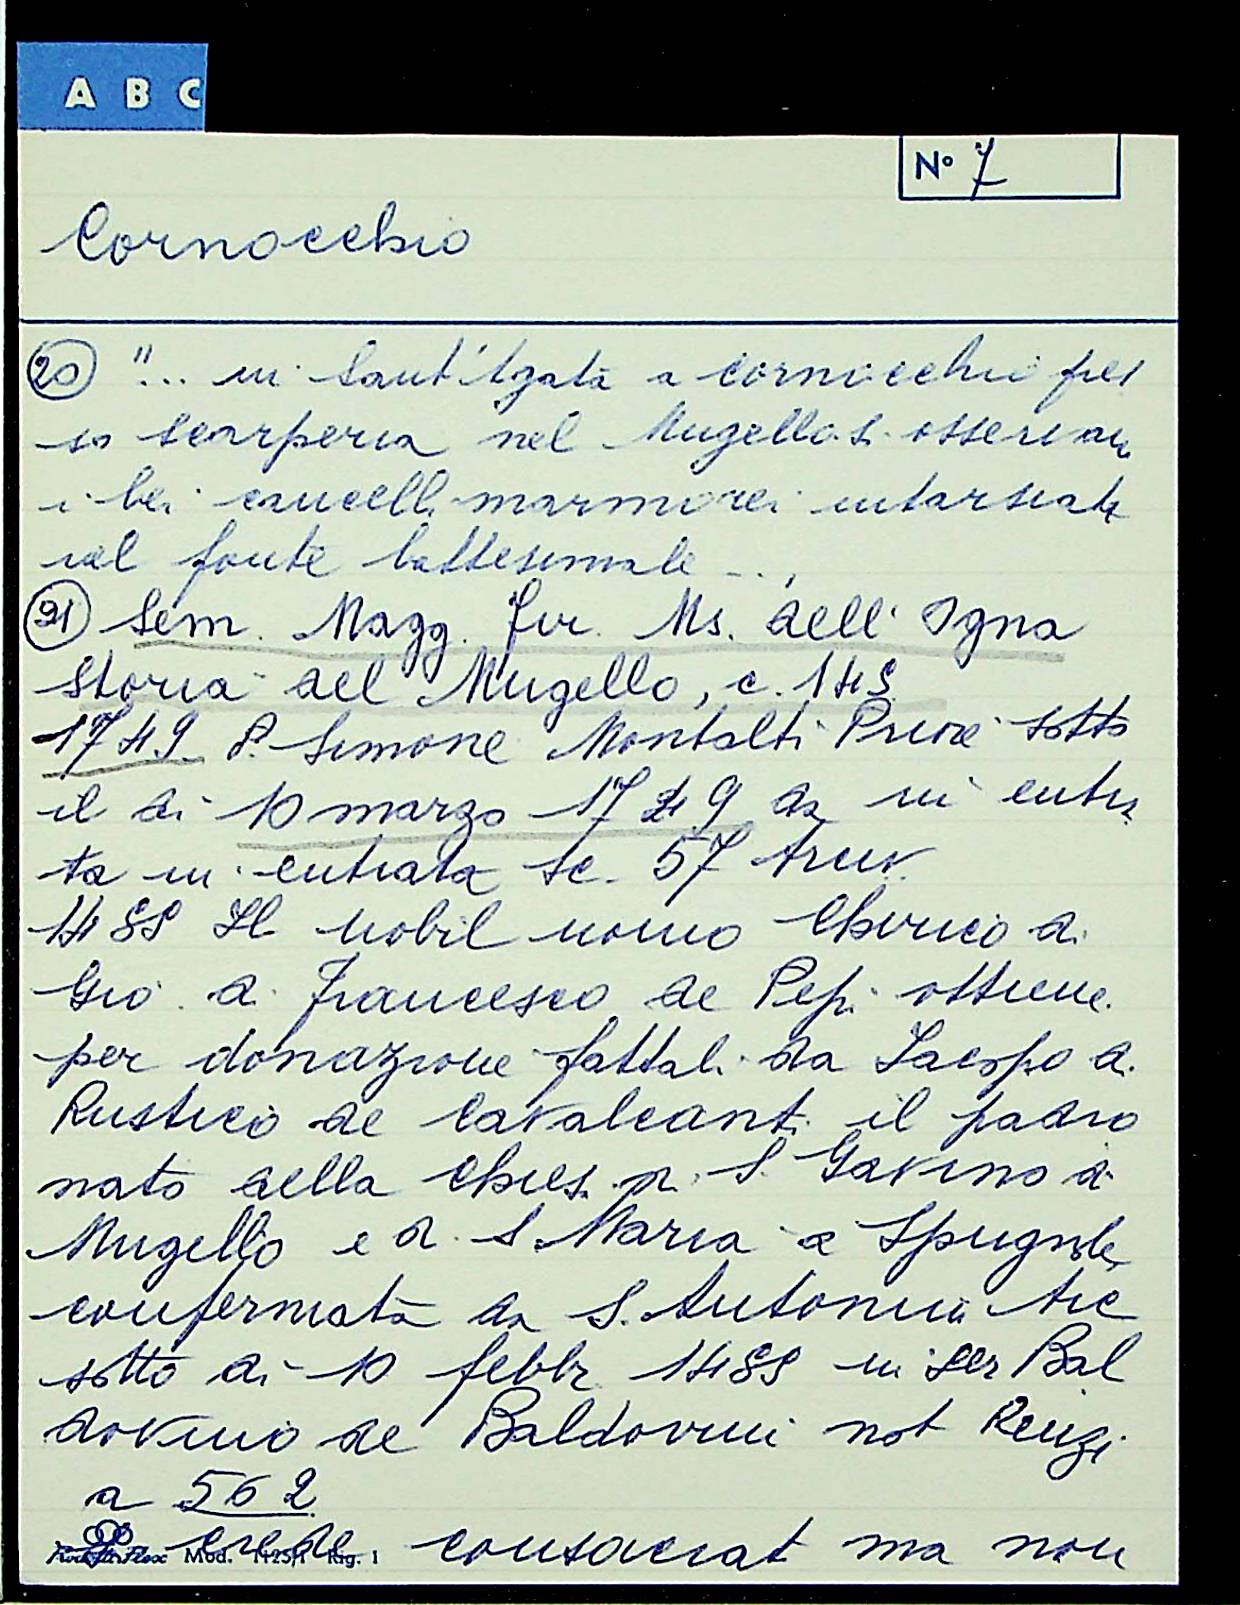 A B C
Nº 7
Cornocchio
20 "... in Sant'Agata a cornocchio pres
so scarperia nel Mugello si osservan
i bei cancelli marmorei intarsiati
del fonte battesimale ...,
21 Sem. Magg. Fir. Ms. dell'Ogna
Storia del Mugello, c. 143
1749 P. Simone Montalti Priore sotto
il di 10 marzo 1749 da in entra
ta in entrata sc. 57
1488 Il nobil uomo Chirico di
Gio di Francesco de Pepi ottiene
per donazione fattali da Iacopo di
Rustico de Cavalcanti il padro
nato della chies. di S. Gavino a
Mugello e di S. Maria a Spugnole
confermata da S. Antonini Arc
sotto di 10 febbr 1488 in ser Bal
dovino de Baldovini not Renzi
a 562
crede consacrat ma non
Mod. 1125/1 Rig. 1